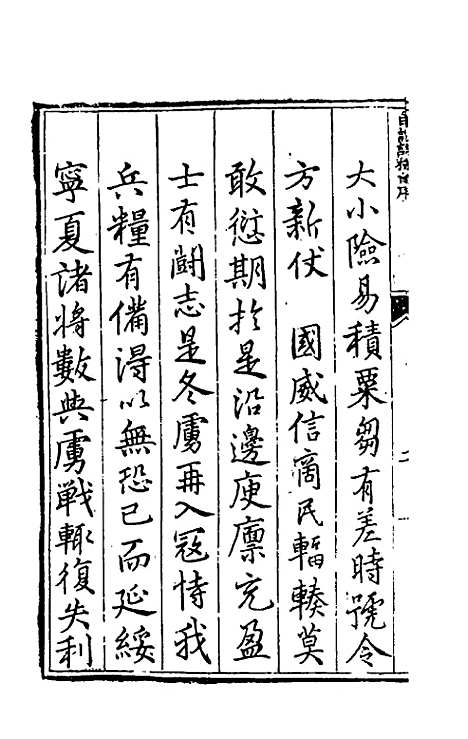 大小險易積粟芻有差時號令
方新仗　國威信商民輻輳莫
敢愆期扵是沿邊庾廩充盈
士有鬬志是冬虜再入冦恃我
兵糧有備得以無恐已而延綏
寧夏諸將數與虜戰輒復失利